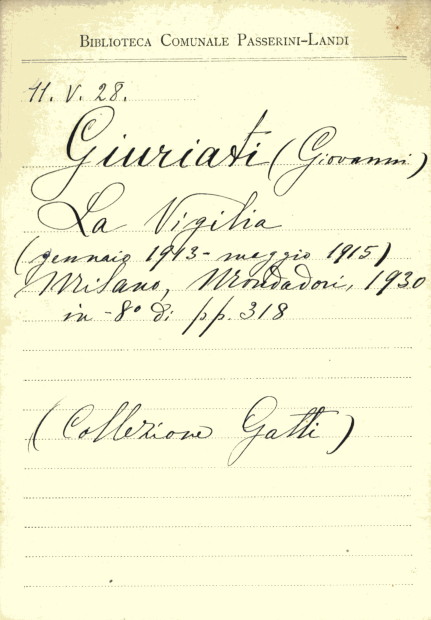 BIBLIOTECA COMUNALE PASSERINI-LANDI
11. V. 28.
Giuriati (Giovanni)
La Vigilia
(gennaio 1913 - maggio 1915)
Milano, Mondadori, 1930
in-8° di pp. 318
(Collezione Gatti)